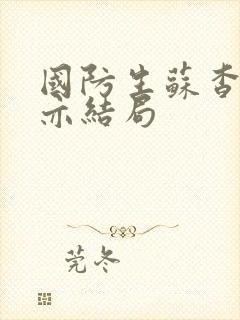 國防生蘇杳
亦結局
莞冬